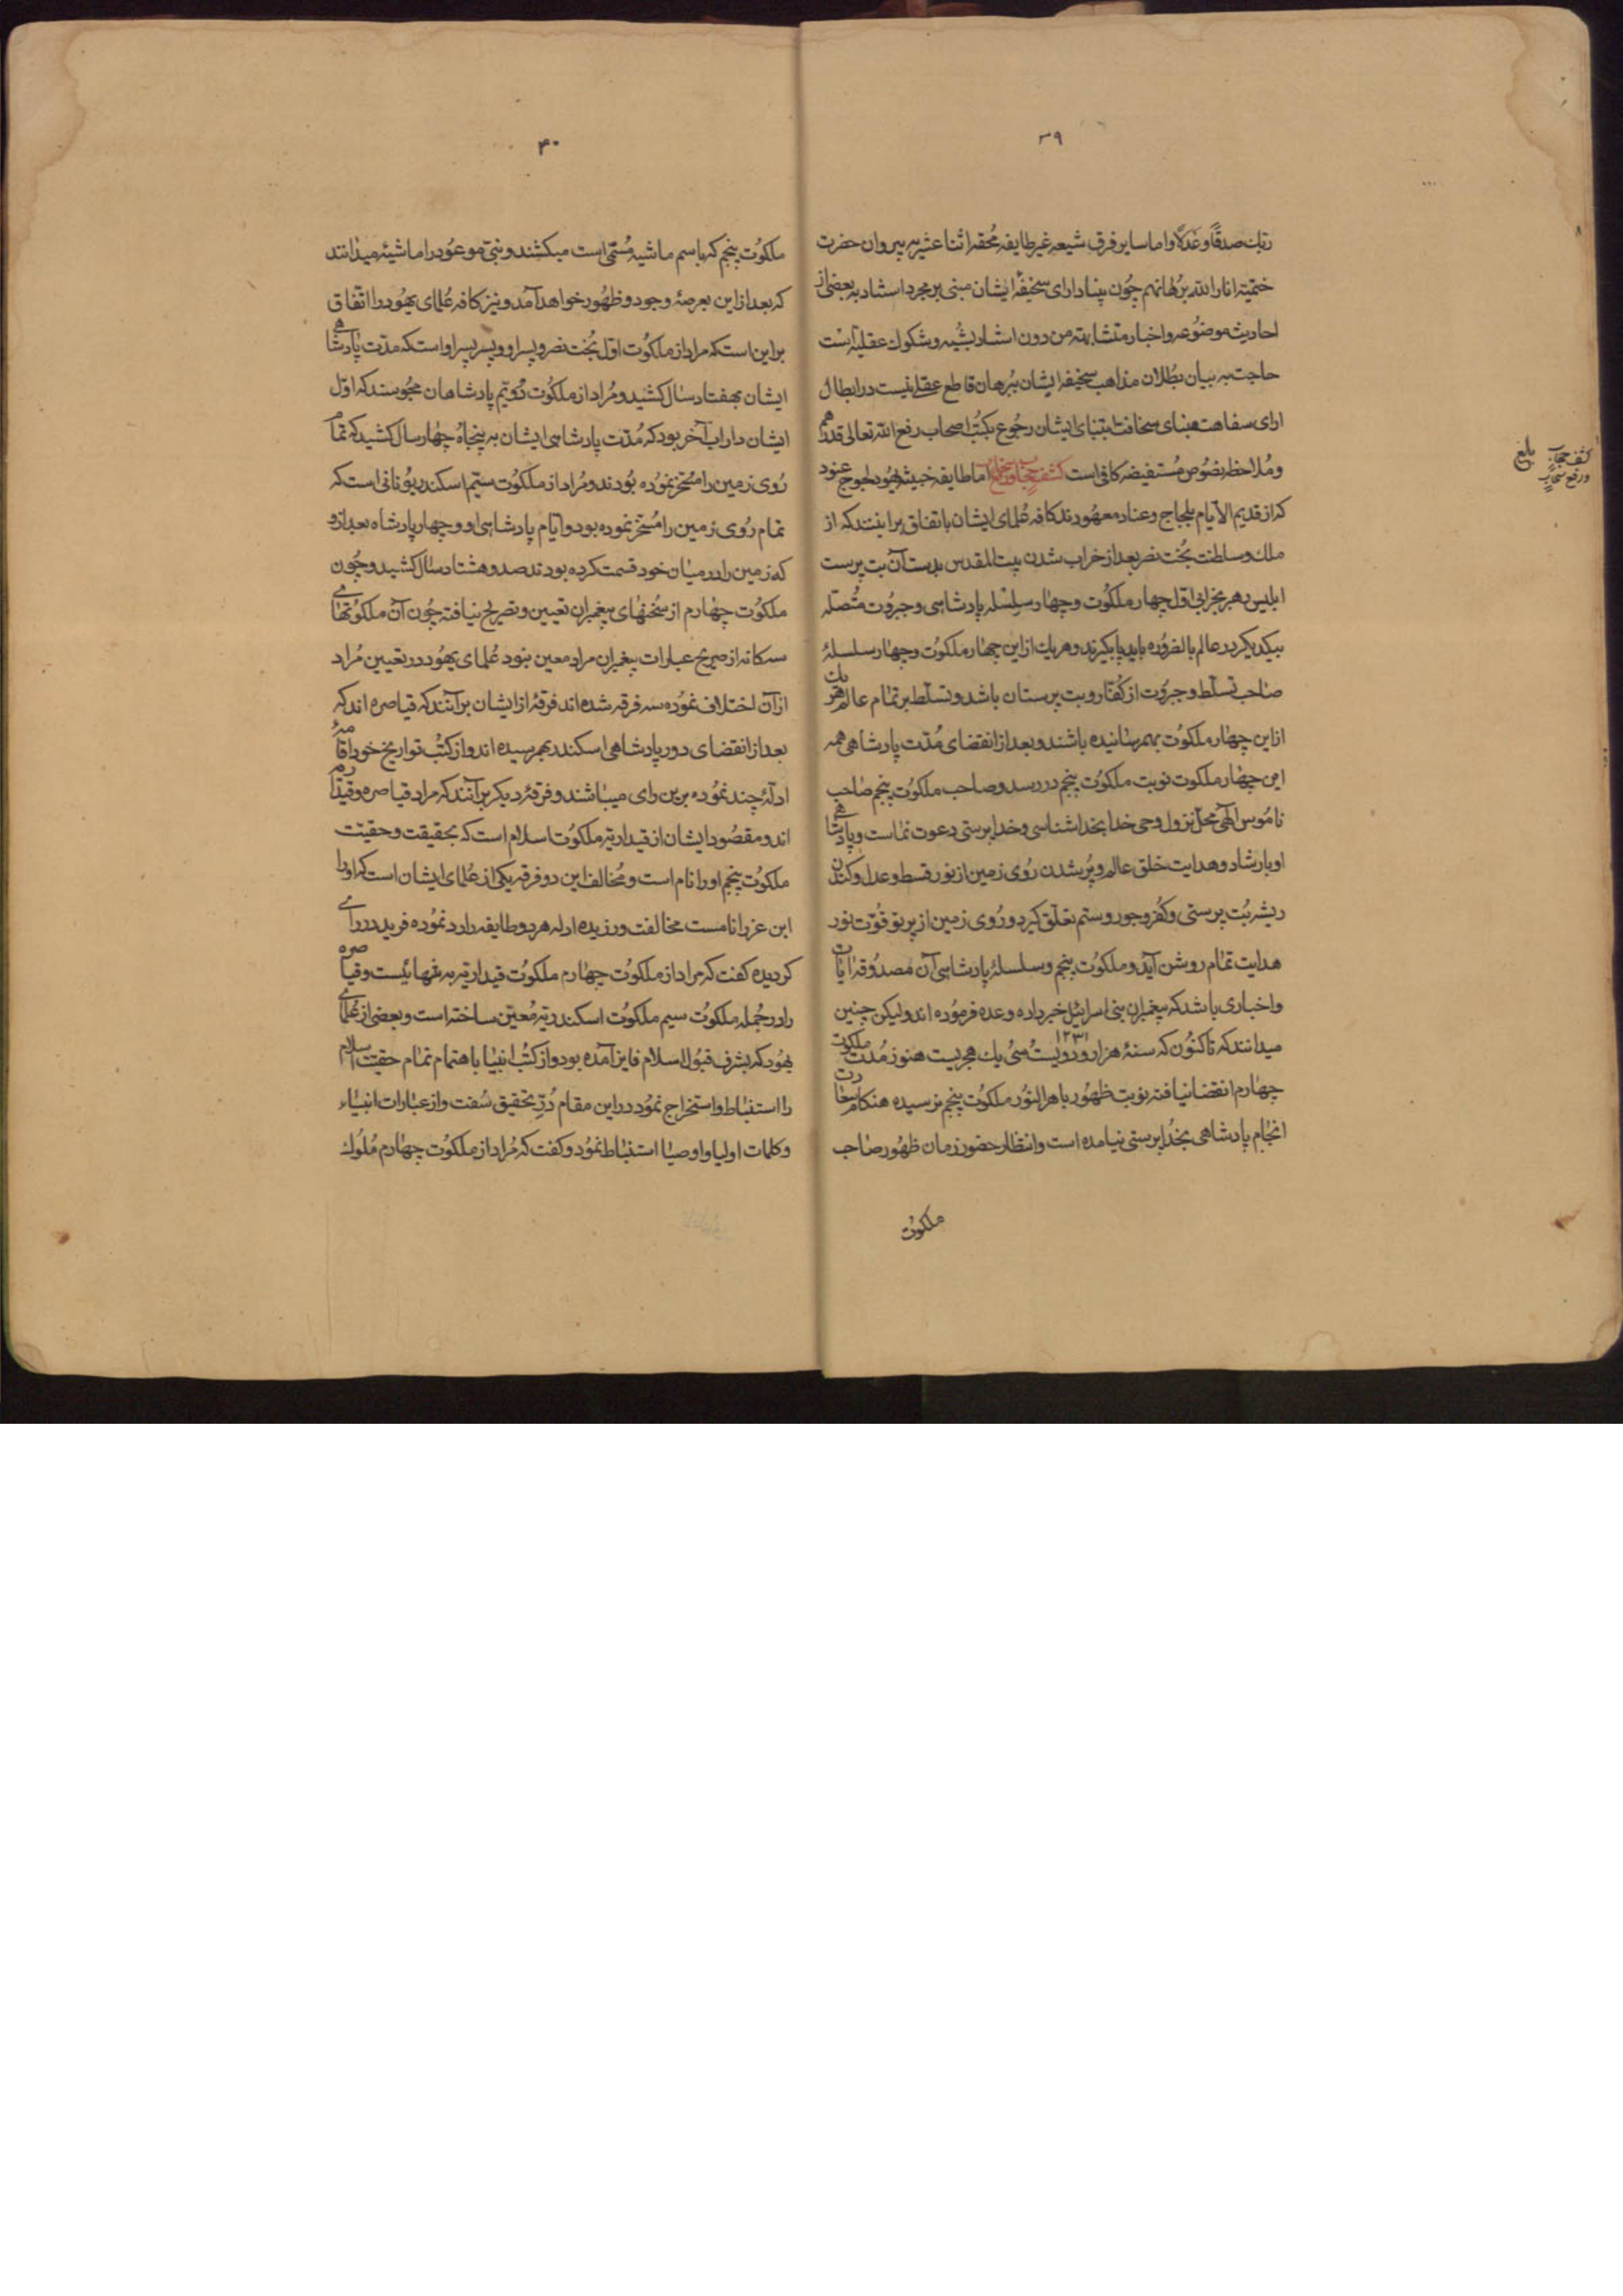 ۳۹
ربك صدقًا وعَدلًا واما سایر فرق شیعه غیر طایفه مُحقه اثنا عشریه پیروان حضرت
ختمیة انار الله بُرهانهم چون بنا دارای سخیفهٔ ایشان مبنی بر مجرد استناد به بعضی از
احادیث موضُوعه و اخبار متشابهة من دون استناد بشُبه و شکوك عقلیة است
حاجت به بیان بُطلان مذاهب سخیفه ایشان ببُرهان قاطع عقلے نیست در ابطال
ارای سفاهت مبنای سخافت ابتنای ایشان رجُوع بکتُب اصحاب رفع الله تعالی قدرهم
و مُلاحظه نصُوص مُستفیضه کافی است کشف حجاب و رفع سحاب اما طایفه خبیثه یهُود لجوج عنود
که از قدیم الایام بلجاج و عناد معهُودند کافه عُلمای ایشان باتفاق برانند که از
ملك و سلطنت بُخت نصر بعد از خراب شدن بیت المقدس بدست آن بت پرست
ابلیس رهبر بخرابی اوّل چهار ملکوُت و چهار سِلسله پادشاهی و جبرُوت متُصله
بیکدیکر در عالم بالضرُوره باید پا بکیرند و هر یك از این چهار ملکوُت و چهار سلسلهٔ
صاحب تسلّط و جبرُوت از کُفّار و بت پرستان باشد و تسلّط بر تمام عالم هر یك
از این چهار ملکوُت بهمرسانیده باشند و بعد از انقضای مُدّت پادشاهی همه
این چهار ملکوت نوبت ملکوُت پنجم در رسد و صاحب ملکوُت پنجم صاحب
نامُوس الٓهی محلّ نزول وحی خدا بخدا شناسی و خدا پرستی دعوت نماست و پادشاهی
او بارشاد و هدایت خلق عالم و پُر شدن رُوی زمین از نور قسط و عدل و کندن
ریشه بُت پرستی و کُفر و جور و ستم تعلّق کیرد و رُوی زمین از پرتو قُوّت نور
هدایت تمام روشن آید و ملکوُت پنجم و سلسلهٔ پادشاهی آن مَصدُوقه ایات
و اخباری باشد که پیغمبران بنی اسرائیل خبر داده وعده فرمُوده اند ولیکن چنین
میدانند که تا کنُون که سنهٔ هزار و دویست و سی یك هجریست ۱۲۳۱ هنوز مُدت ملکوت
چهارم انقضا نیافته نوبت ظهُور باهر النوُر ملکوُت پنجم نرسیده هنکام سعادت
انجام پادشاهی بخُدا پرستی نیامده است و انتظار حضور زمان ظهُور صاحب
ملکوُت
کشف حجاب
و رفع سحاب
بلغ
۴۰
ملکوُت پنجم که باسم ماشیه مُسمّی است میکشند و نبیّ موعُود را ماشیهٔ میدانند
که بعد از این بعرصهٔ وجود و ظهُور خواهد آمد و نیز کافه عُلمای یهُود را اتّفاق
براین است که مراد از ملکوُت اوّل بُخت نصر و پسر او و پسر پسر او است که مدّت پادشاهے
ایشان بهفتاد سال کشید و مُراد از ملکوُت دُویّم پادشاهان مجُوسند که اوّل
ایشان داراب آخر بود که مُدّت پادشاهی ایشان به پنجاهُ چهار سال کشید که تمام
رُوی زمین را مُسخّر نمُوده بُودند و مُراد از ملکوُت سیّم اسکندر یونانی است که
تمام رُوی زمین را مُسخّر نموده بود و ایّام پادشاهی او و چهار پادشاه بعد از و
که زمین را در میان خود قسمت کرده بودند صد و هشتاد سال کشید و چُون
ملکوُت چهارم از سُخنهای پیغمبران تعیین و تصریح نیافته چُون آن ملکوُتهاے
سه کانه از صریح عبارات پیغمبران مراد معین نبود عُلمای یهُود در تعیین مُراد
از آن اختلاف نموُده سه فرقه شده اند فرقهٔ از ایشان برآنند که قیاصره اند که
بعد از انقضای دور پادشاهی اسکندر بهمرسیده اند و از کتُب تواریخ خود اقامهٔ
ادلّهٔ چند نموُده برین رای میباشند و فرقهٔ دیکر برآنند که مراد قیاصره و قیدارم
اند و مقصُود ایشان از قیداریّه ملکوُت اسلام است که بحقیقت و حقیّت
ملکوُت پنجم او را نام است و مُخالف این دو فرقه یکی از عُلمای ایشان است که او را
ابن عزرا نامست مخالفت ورزیده ادله هر دو طایفه را رد نموُده فرید در راے
کردیده کفت که مراد از ملکوُت چهارم ملکوُت قیداریّه به تنهائیست و قیاصره
را در جُمله ملکوُت سیم ملکوُت اسکندریّه مُعیّن ساخته است و بعضی از عُلماے
یهُود که بشرف قبُول اسلام فایز آمده بود و از کتُب انبیا باهتمام تمام حقیّت اسلام
را استنباط و استخراج نمُود در این مقام دُرّ تحقیق سُفت و از عبارات انبیاء
و کلمات اولیا و اوصیا استنباط نمُود و کفت که مُراد از ملکوُت چهارم مُلُوك